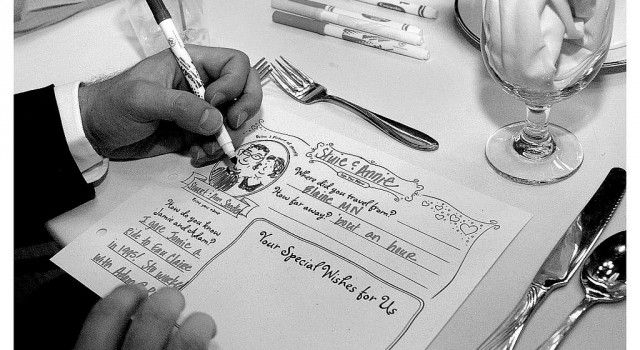 Stwie & Annie
Where did you travel from?
Blaine MN
How far away? 'bout an hour
How do you know
Jamie and Adam?
I gave Jamie a
ride to Eau Claire
in 1995! Stu works
with Adam
Your Special Wishes for Us